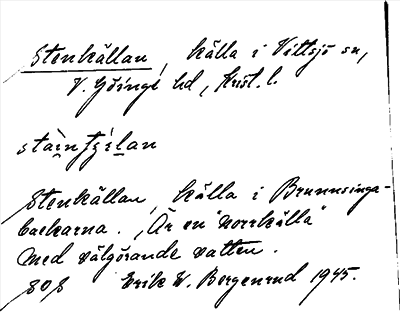 Stenkällan, källa i Vittsjö sn,
V. Göinge hd, Krist. l.
Stenkällan, källa i Brunnsinga-
backarna. "Är en "norrkälla"
med välgörande vatten.
Erik W. Bergenrud 1945.